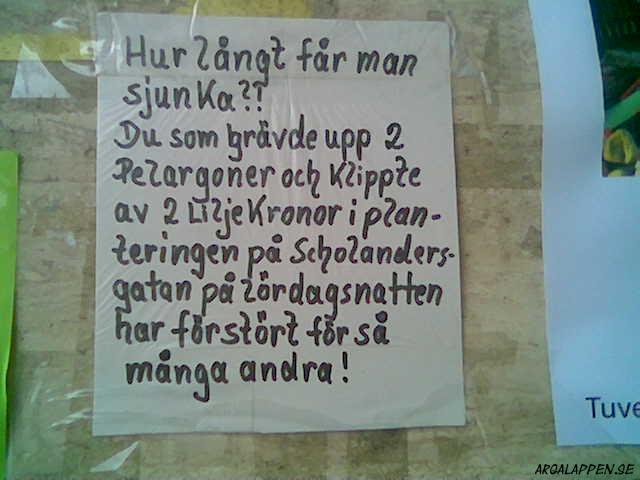 Hur långt får man
sjunka??
Du som grävde upp 2
Pelargoner och klippte
av 2 Liljekronor i plan-
teringen på Scholanders-
gatan på lördagsnatten
har förstört för så
många andra!
Tuve
ARGALAPPEN.SE